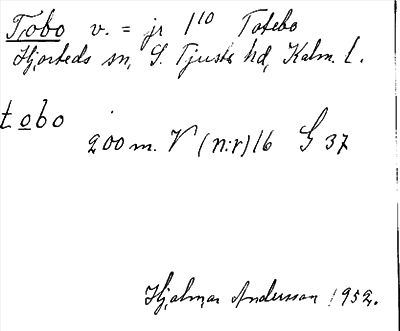 Tobo v. = jr 1¹⁰ Totebo
Hjorteds sn, S. Tjusts hd, Kalm. l.
tobo
200 m. V (n:r) 16 G 37
Hjalmar Andersson 1952.